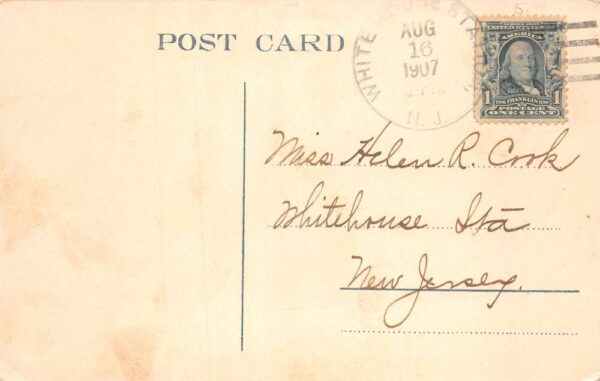 POST CARD
WHITE HOUSE STA
AUG
16
1907
N.J.
UNITED STATES OF
AMERICA
1 FRANKLIN 1
POSTAGE
ONE CENT
Miss Helen R. Cook
Whitehouse Sta
New Jersey.